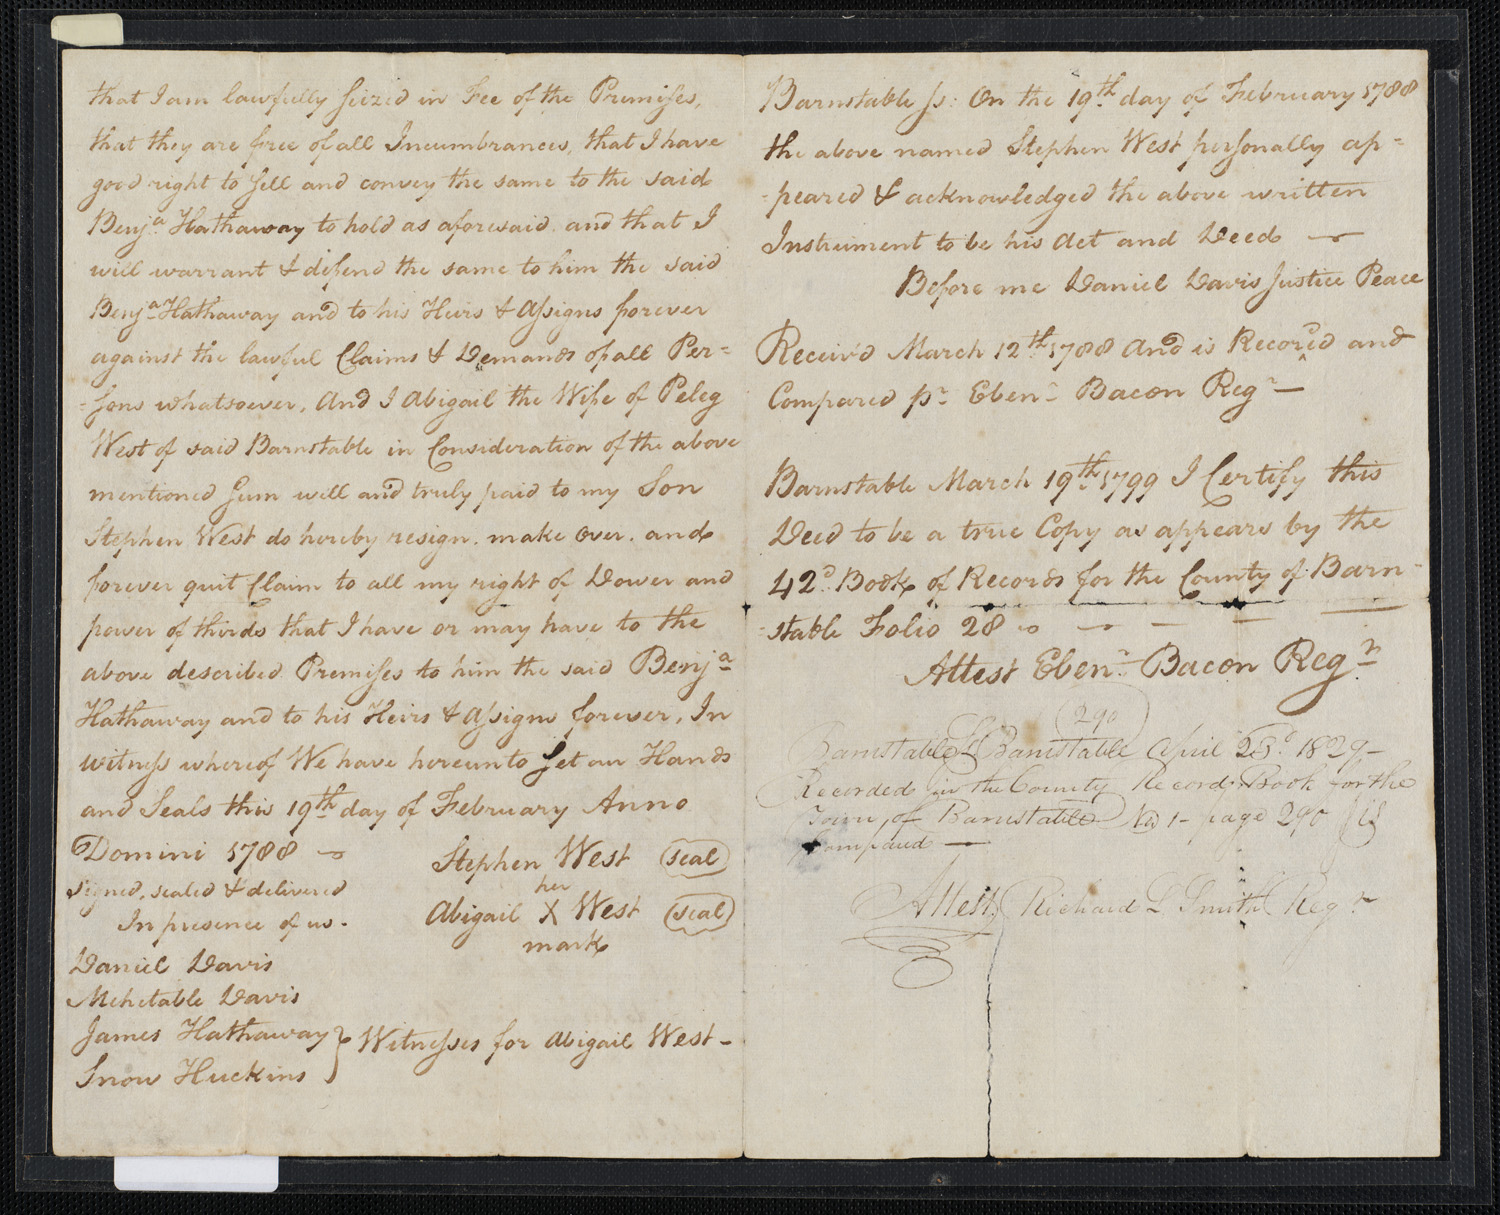 that I am lawfully seized in Fee of the Premises,
that they are free of all Incumbrances, that I have
good right to sell and convey the same to the said
Benja. Hathaway to hold as aforesaid. and that I
will warrant & defend the same to him the said
Benja. Hathaway and to his Heirs & Assigns forever
against the lawful Claims & Demands of all Per=
=sons whatsoever. And I Abigail the Wife of Peleg
West of said Barnstable in Consideration of the above
mentioned sum will and truly paid to my Son
Stephen West do hereby resign. make over. and
forever quit Claim to all my right of Dower and
power of thirds that I have or may have to the
above described Premises to him the said Benja.
Hathaway and to his Heirs & Assigns forever. In
witness whereof We have hereunto set our Hands
and Seals this 19th day of February Anno
Domini 1788
Stephen West (seal)
signed, sealed & delivered
In presence of us.
her
Abigail X West (seal)
mark
Daniel Davis
Mehetable Davis
James Hathaway } Witnesses for Abigail West -
Snow Huckins
Barnstable ss: On the 19th day of February 1788
the above named Stephen West personally ap=
=peared & acknowledged the above written
Instrument to be his Act and Deed
Before me Daniel Davis Justice Peace
Receivd March 12th 1788 And is Record'd and
Compared pr Ebenr Bacon Regr
Barnstable March 19th 1799 I Certify this
Deed to be a true Copy as appears by the
42d. Book of Records for the County of Barn-
=stable Folio 28
Attest Ebenr Bacon Regr
290
Barnstable Ss Barnstable April 23d 1829-
Recorded in the County Records Book for the
Town of Barnstable No 1- page 290
Compared
Attest Richard L Smith Regr